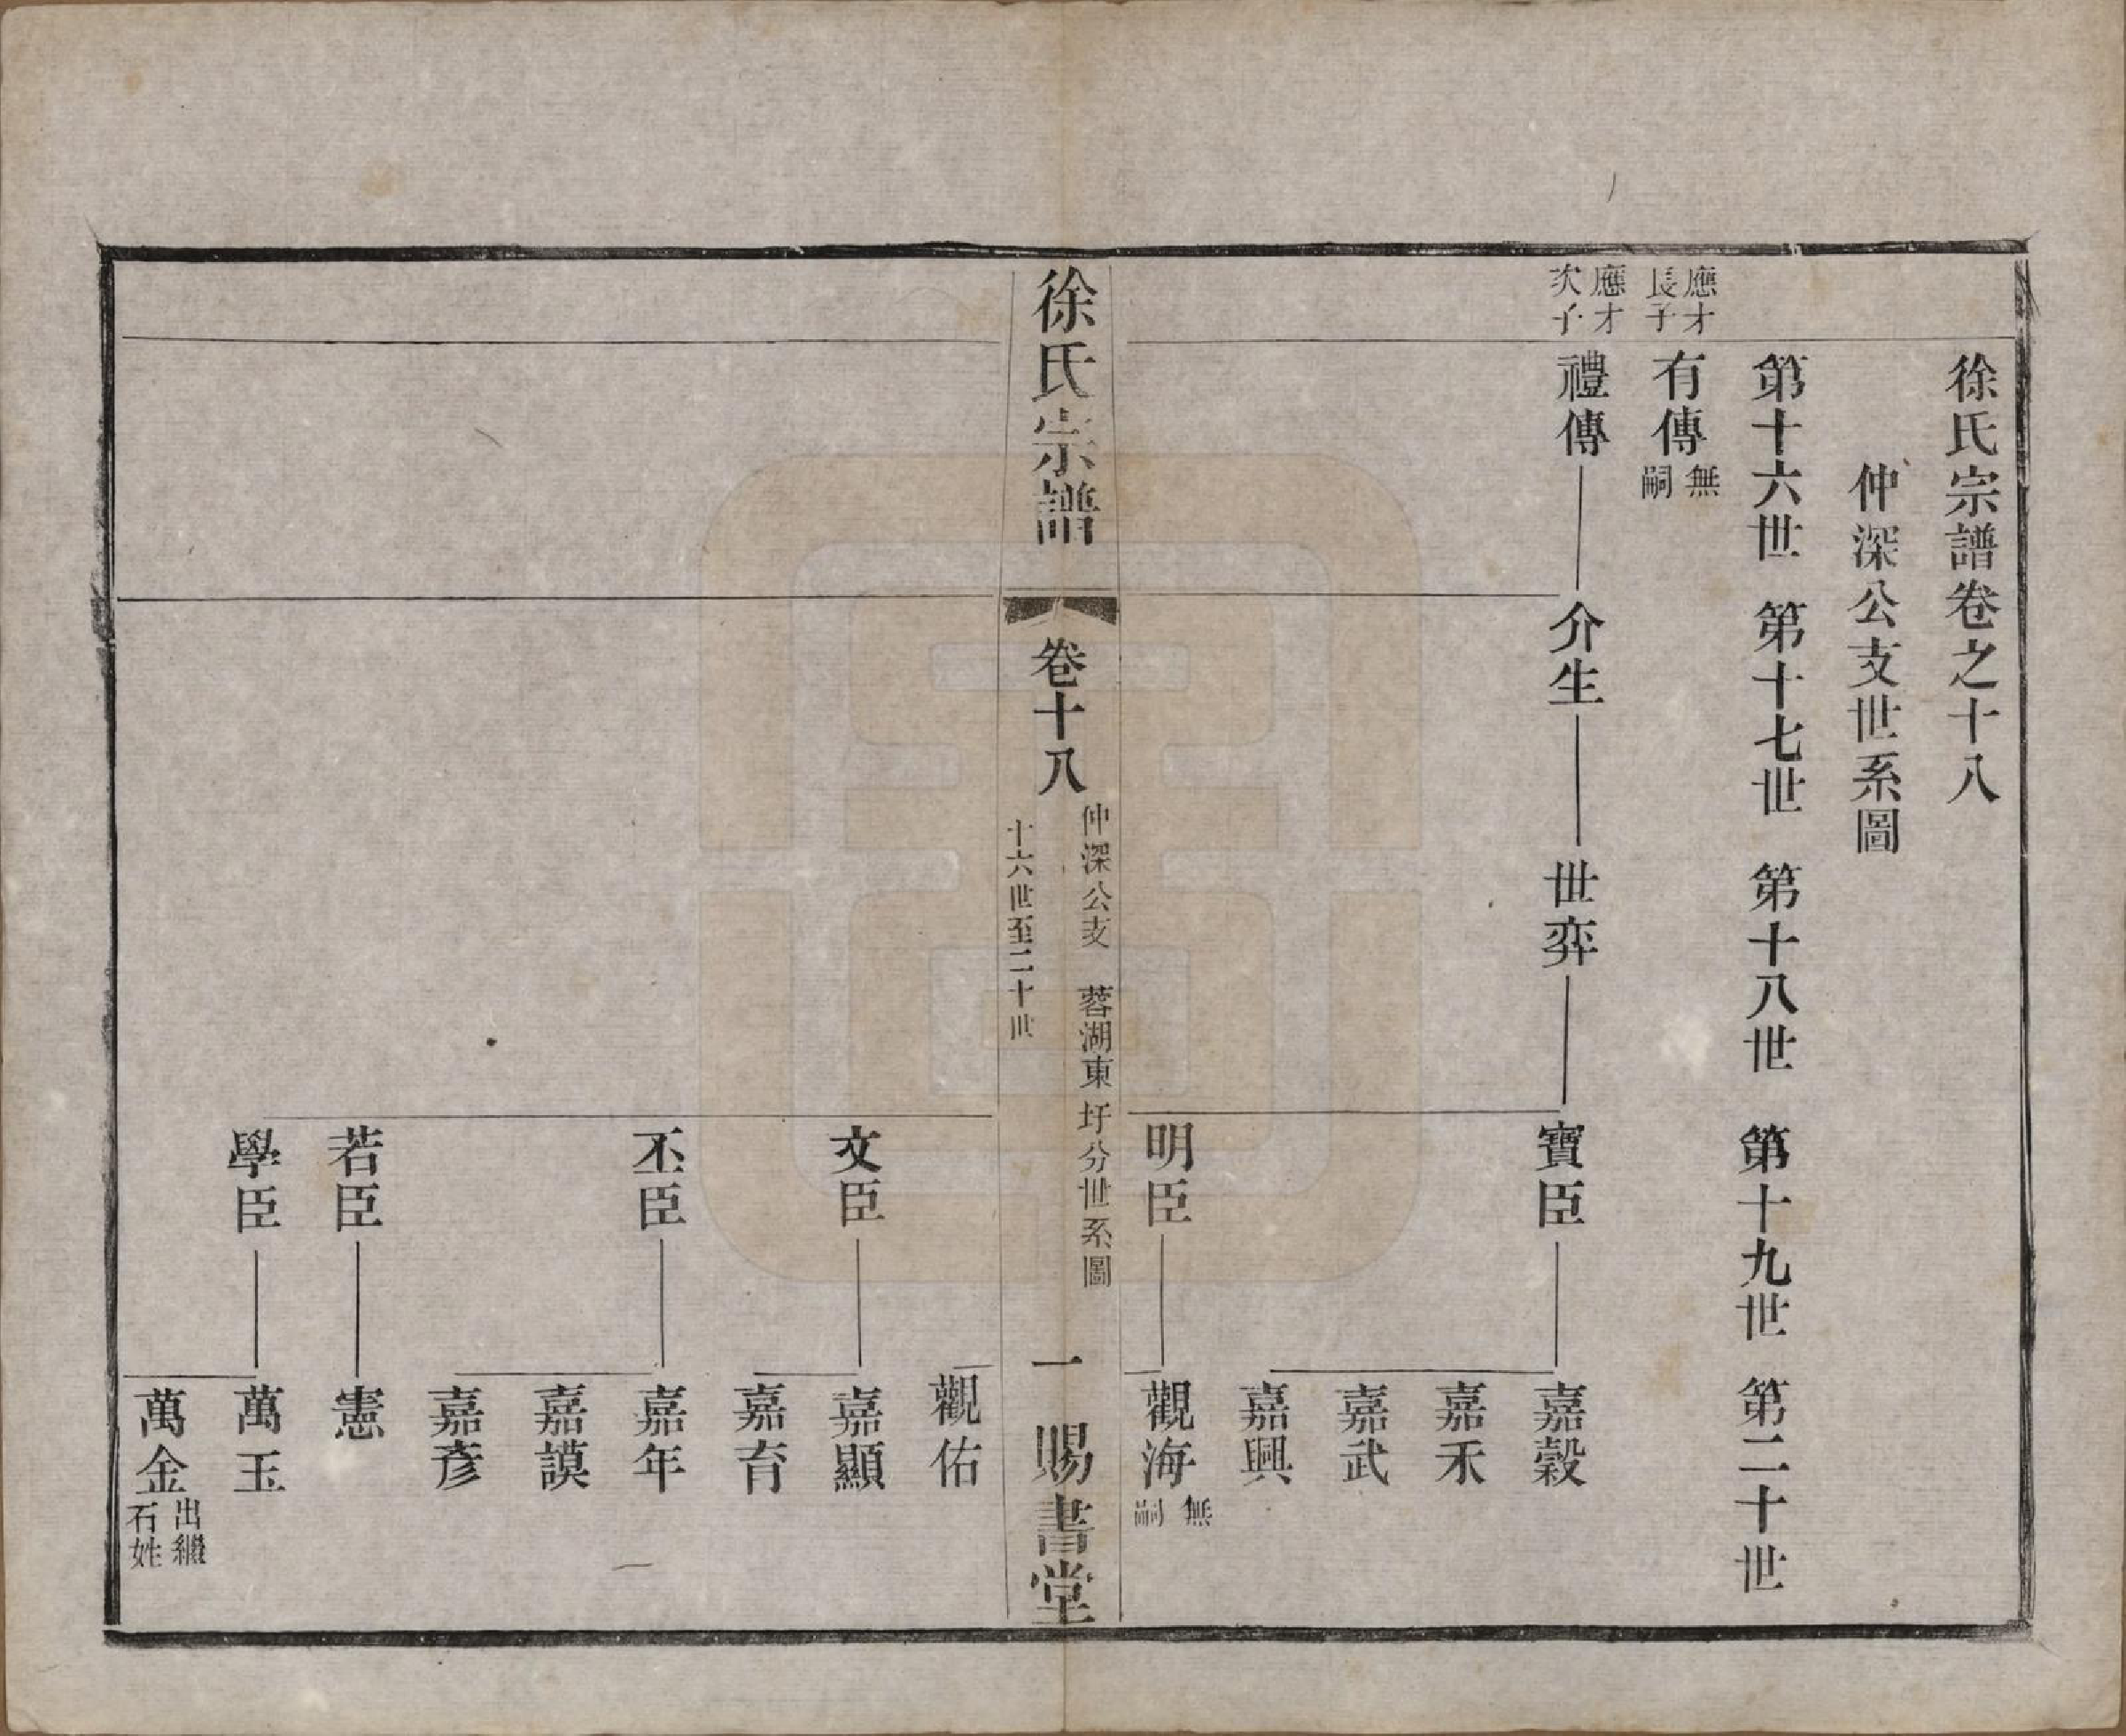 徐氏宗譜卷之十八
仲深公支世系圖
第十六世　第十七世　第十八世　第十九世　第二十世
應才
長子
有傳
無
嗣
應才
次子
禮傳　介生　世弈　寶臣　嘉穀
嘉禾
嘉武
嘉興
明臣　觀海
無
嗣
徐氏宗譜　卷十八　一　賜書堂
仲深公支　蓉湖東圩分世系圖
十六世至二十世
觀佑
文臣　嘉顯
嘉育
丕臣　嘉年
嘉謨
嘉彥
若臣　憲
學臣　萬玉
萬金
出繼
石姓